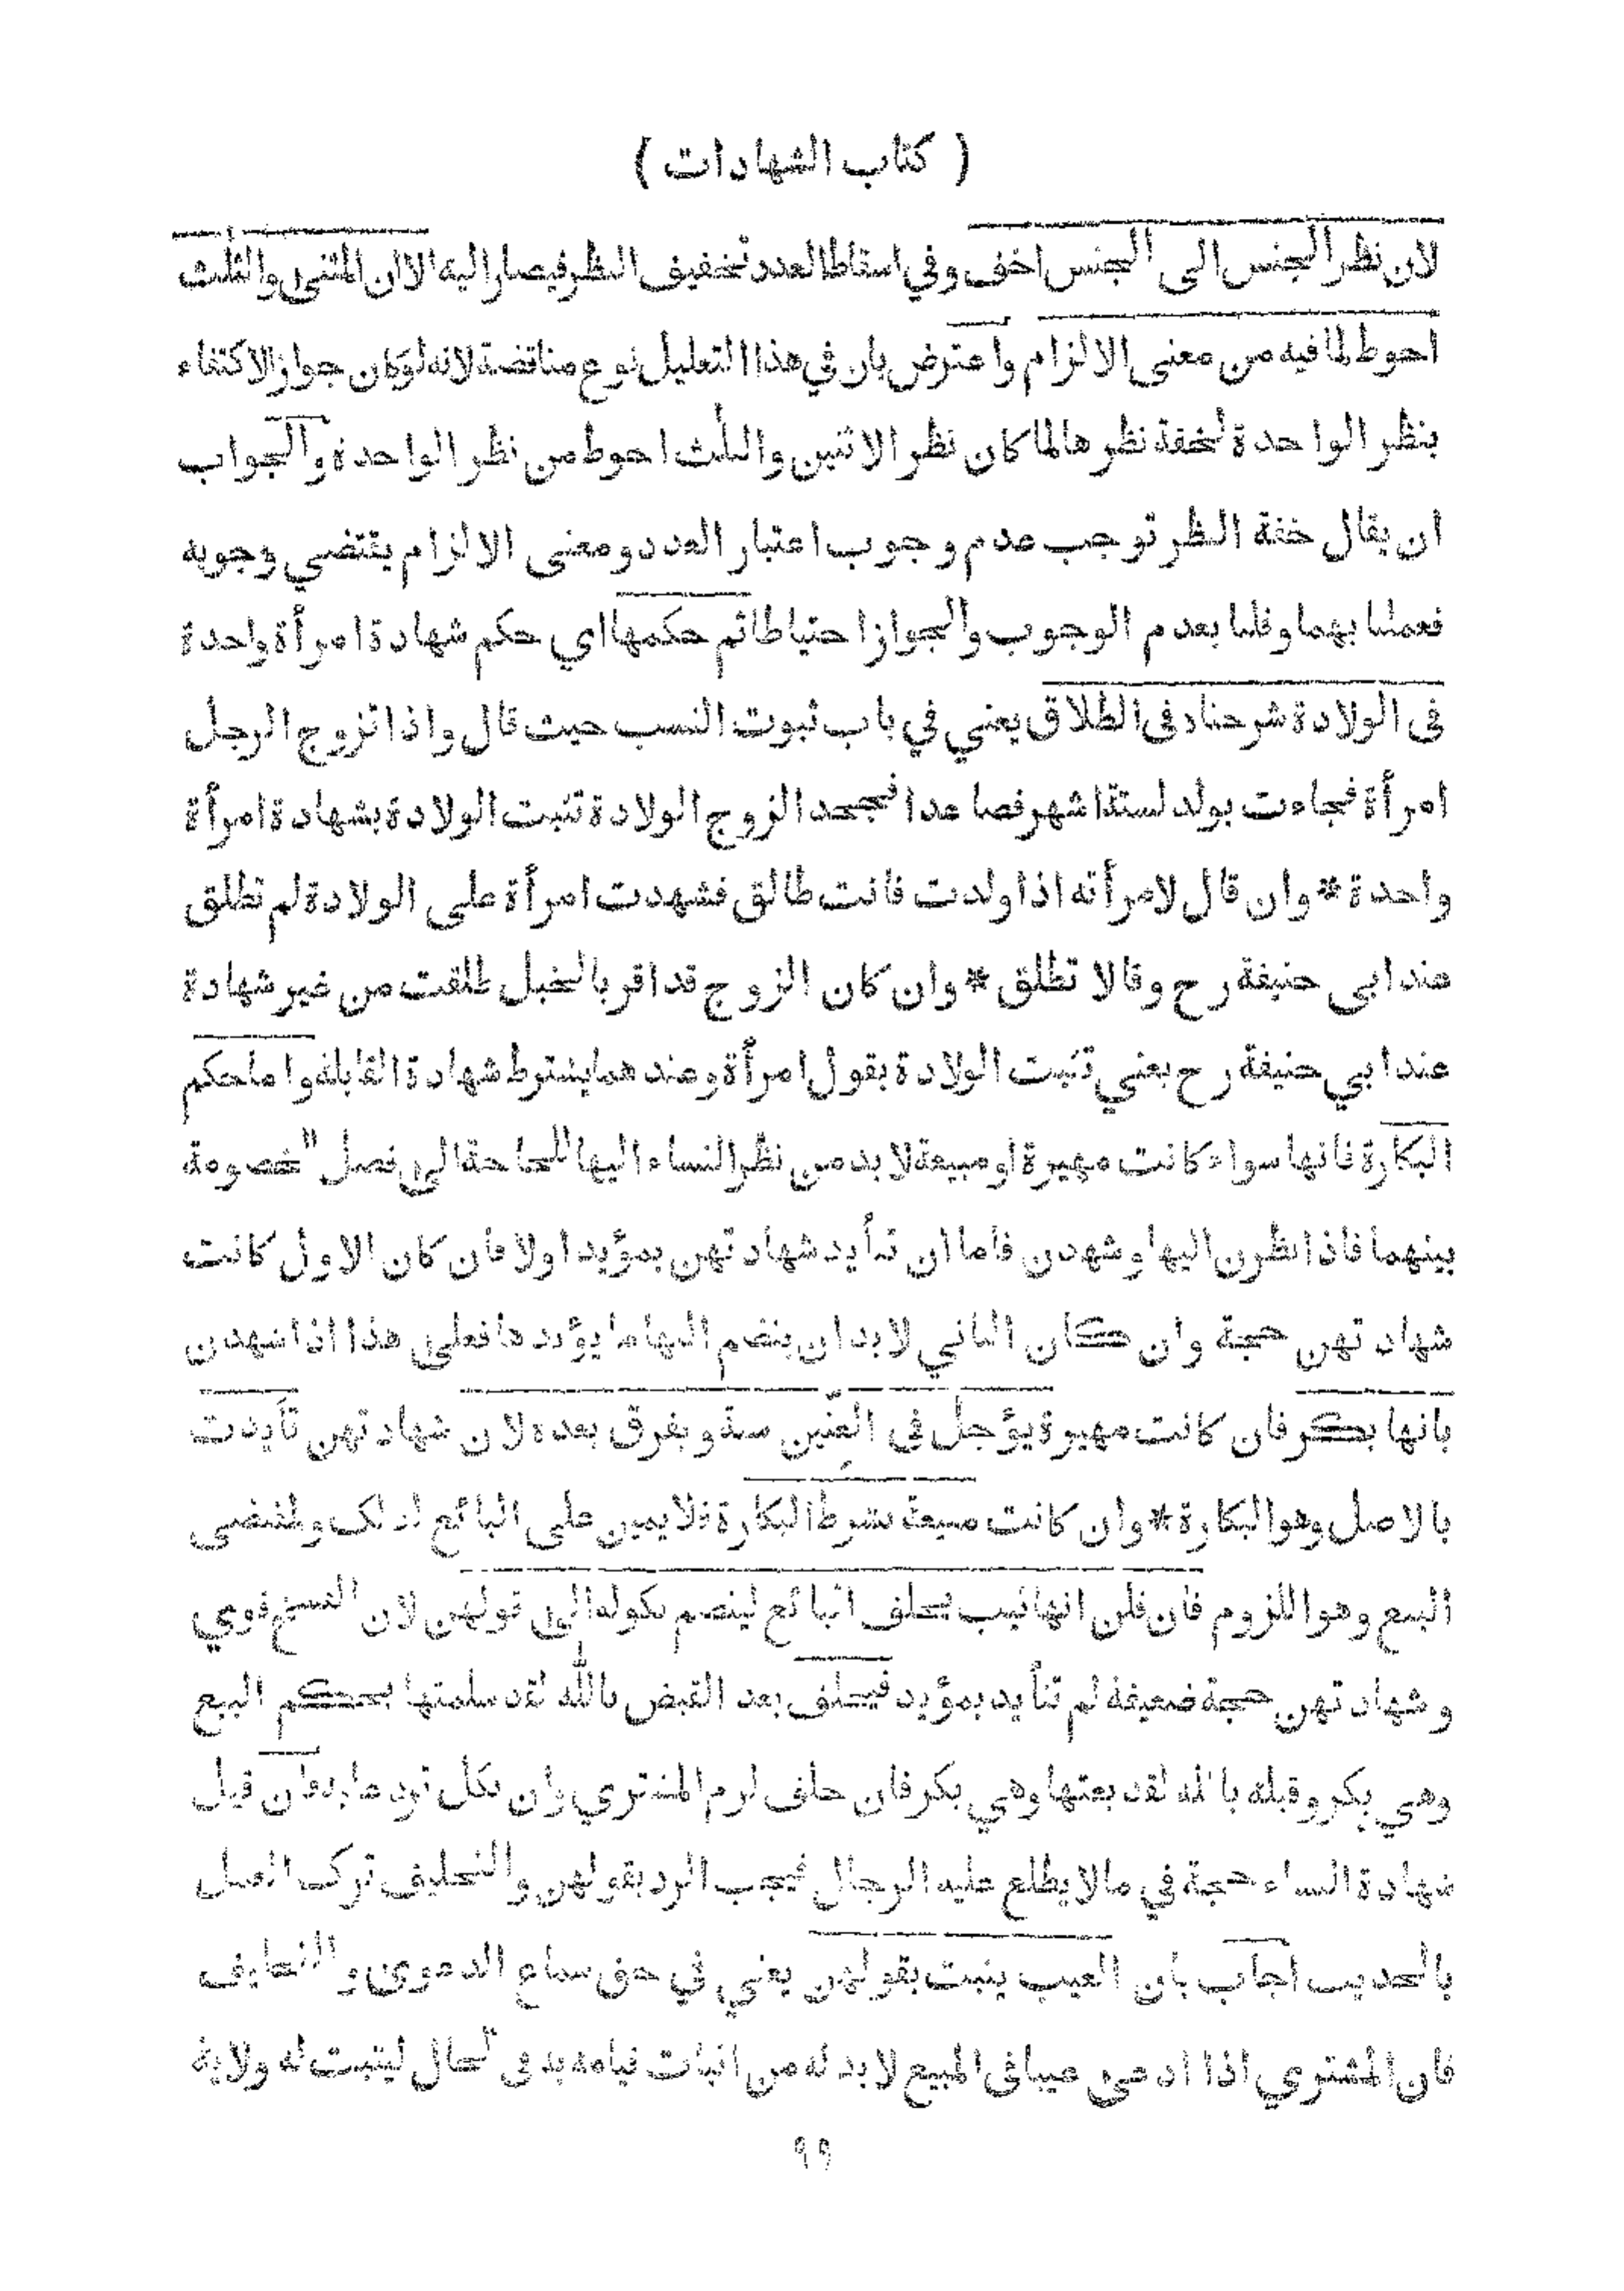 ( كتاب الشهادات )
لان نظر الجنس الى الجنس اخف وفي اسقاط العدد تخفيف النظر فيصار اليه الا ان المثنى والثلث
احوط لما فيه من معنى الالزام واعترض بان في هذا التعليل نوع مناقضة لانه لوكان جواز الاكتفاء
بنظر الواحدة لخفة نظرها لما كان نظر الاثنين والثلث احوط من نظر الواحدة والجواب
ان يقال خفة النظر توجب عدم وجوب اعتبار العدد ومعنى الالزام يقتضي وجوبه
فعملنا بهما وقلنا بعدم الوجوب والجواز احتياطا ثم حكمها اي حكم شهادة امرأة واحدة
فى الولادة شرحناه فى الطلاق يعني في باب ثبوت النسب حيث قال واذا تزوج الرجل
امرأة فجاءت بولد لستة اشهر فصاعدا فجحد الزوج الولادة تثبت الولادة بشهادة امرأة
واحدة * وان قال لامرأته اذا ولدت فانت طالق فشهدت امرأة على الولادة لم تطلق
عند ابى حنيفة رح وقالا تطلق * وان كان الزوج قد اقر بالحبل طلقت من غير شهادة
عند ابي حنيفة رح يعني تثبت الولادة بقول امرأة وعندهما يشترط شهادة القابلة واما حكم
البكارة فانها سواء كانت مهيرة او مبيعة لا بد من نظر النساء اليها للحاجة الى فصل الخصومة
بينهما فاذا نظرن اليها وشهدن فاما ان تتأيد شهادتهن بمؤيد اولا فان كان الاول كانت
شهادتهن حجة وان كان الثاني لا بد ان ينضم اليها ما يؤيدها فعلى هذا اذا شهدن
بانها بكر فان كانت مهيرة يؤجل فى العِنّين سنة ويفرق بعده لان شهادتهن تأيدت
بالاصل وهو البكارة * وان كانت مبيعة بشرط البكارة فلا يمين على البائع لذلك ولمقتضى
البيع وهو اللزوم فان قلن انها ثيب يحلف البائع لينضم نكوله الى قولهن لان الفسخ قوي
وشهادتهن حجة ضعيفة لم تتأيد بمؤيد فيحلف بعد القبض بالله لقد سلمتها بحكم البيع
وهي بكر وقبله بالله لقد بعتها وهي بكر فان حلف لزم المشتري وان نكل ترد عليه فان قيل
شهادة النساء حجة في ما لا يطلع عليه الرجال فيجب الرد بقولهن والتحليف ترك العمل
بالحديث اجاب بان العيب يثبت بقولهن يعني في حق سماع الدعوى والتحليف
فان المشتري اذا ادعى عيبا فى المبيع لا بد له من اثبات قيامه به فى الحال ليثبت له ولاية
٩٩